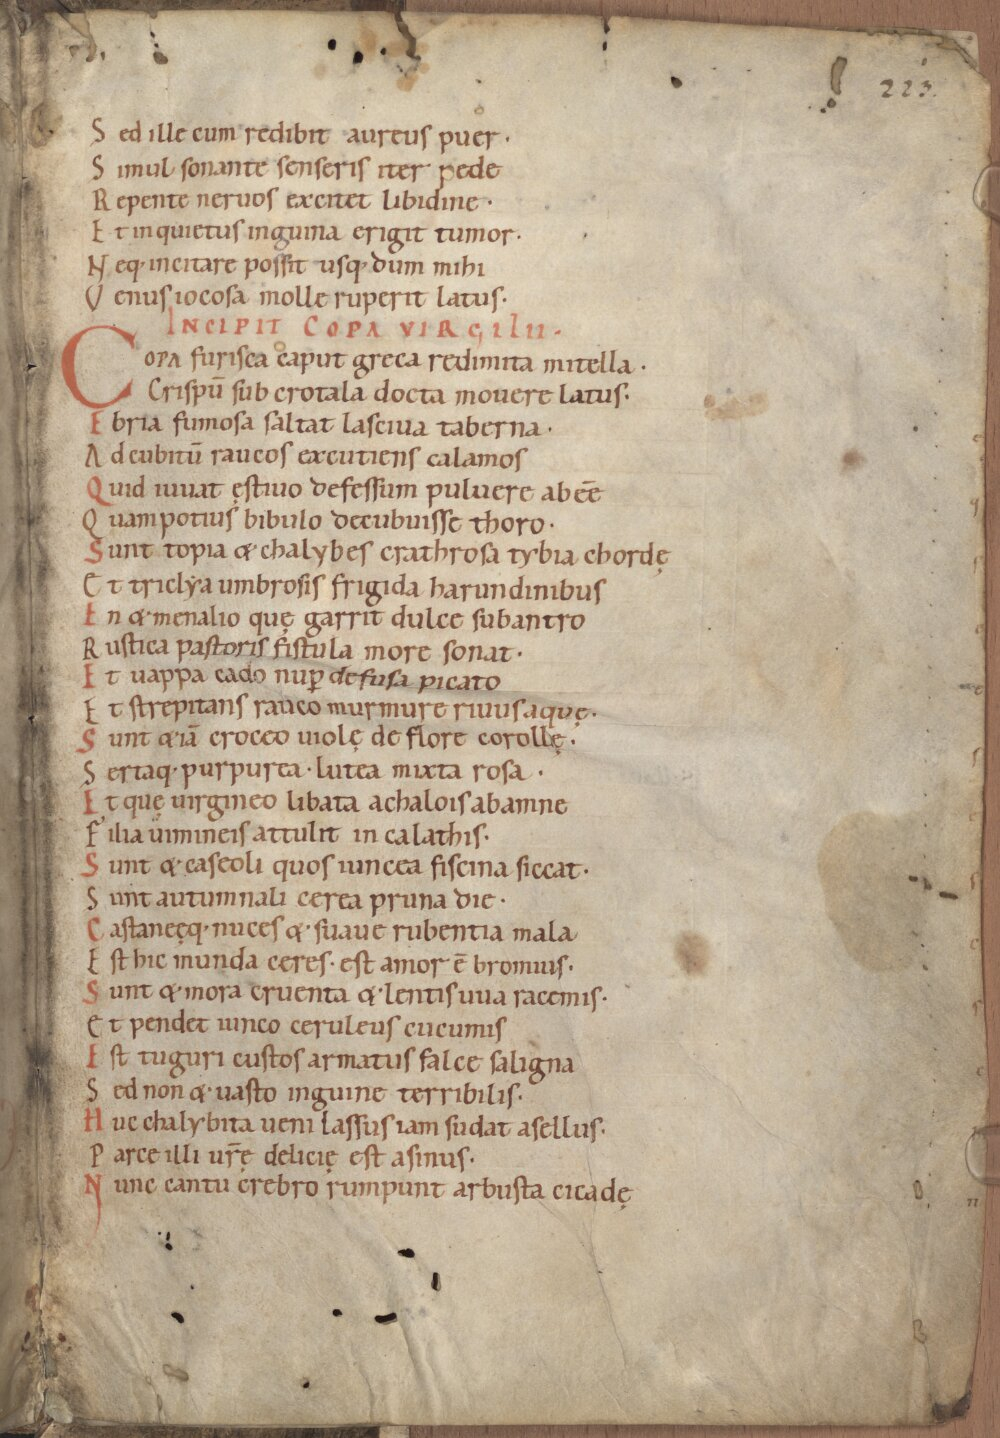 223.
Sed ille cum redibit aureus puer.
Simul sonante senseris iter pede
Repente neruos excitet libidine.
Et inquietus inguina erigit tumor.
Neq. incitare possit usq. dum mihi
Venus iocosa molle ruperit latus.
INCIPIT COPA VIRGILII.
COPA furisca caput greca redimita mitella.
Crispū sub crotala docta mouere latus.
Ebria fumosa saltat lasciua taberna.
Ad cubitū raucos excutiens calamos
Quid iuuat ęstiuo defessum puluere abeē
Quam potius bibulo decubuisse thoro.
Sunt topia & chalybes crathrosa tybia chordę
Et triclẏa umbrosis frigida harundinibus
En & menalio quę garrit dulce sub antro
Rustica pastoris fistula more sonat.
Et uappa cado nuꝑ defusa picato
Et strepitans rauco murmure riuus aquę.
Sunt & iā croceo uiolę de flore corollę.
Sertaq. purpurea. lutea mixta rosa.
Et quę uirgineo libata achalois ab amne
Filia uimineis attulit in calathis.
Sunt & caseoli quos iuncea fiscina siccat.
Sunt autumnali cerea pruna die.
Castaneęq. nuces & suaue rubentia mala
Est hic munda ceres. est amor ē bromius.
Sunt & mora cruenta & lentis uua racemis.
Et pendet iunco ceruleus cucumis
Est tuguri custos armatus falce saligna
Sed non & uasto inguine terribilis.
Huc chalybita ueni lassus iam sudat asellus.
Parce illi ur̄ę delicię est asinus.
Nunc cantu crebro rumpunt arbusta cicadę